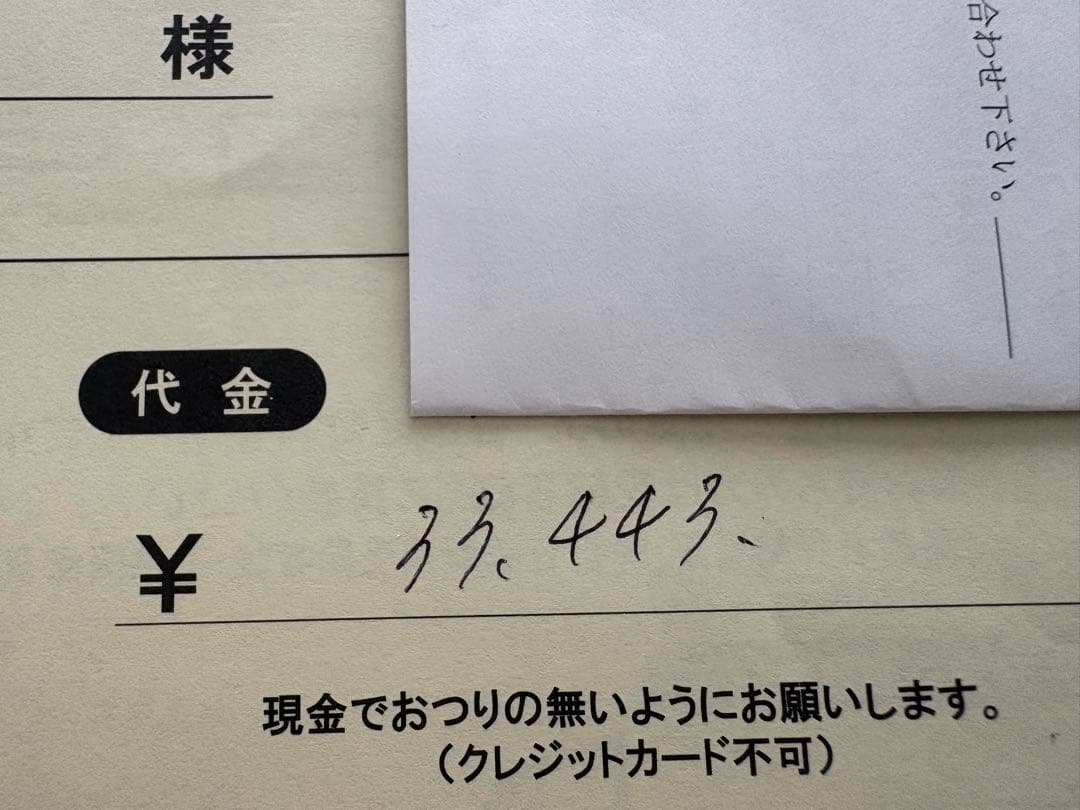 様
合わせ下さい。
代金
¥ 33,443.
現金でおつりの無いようにお願いします。
(クレジットカード不可)